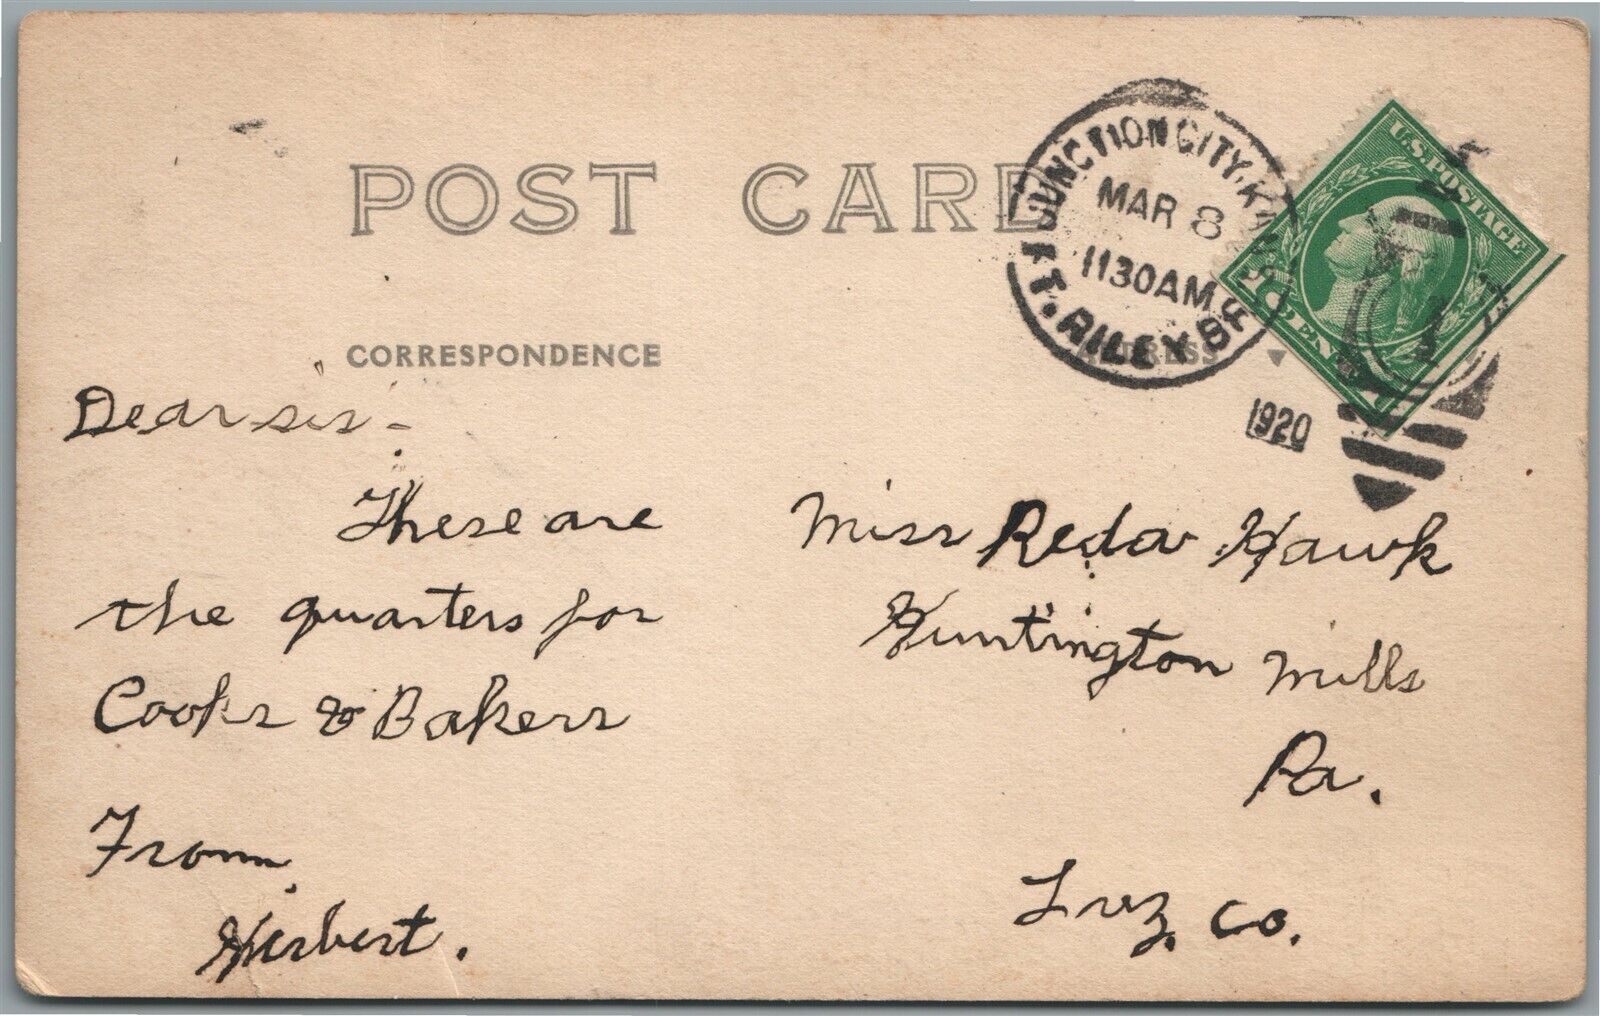 POST CARD
JUNCTION CITY, KANS.
MAR 8
1130 AM
FT. RILEY BR.
1920
U.S. POSTAGE
1 CENT 1
CORRESPONDENCE
ADDRESS
Dear sis -
These are
the quarters for
Cooks & Bakers
From,
Herbert.
Miss Reda Hawk
Huntington Mills
Pa.
Luz. Co.